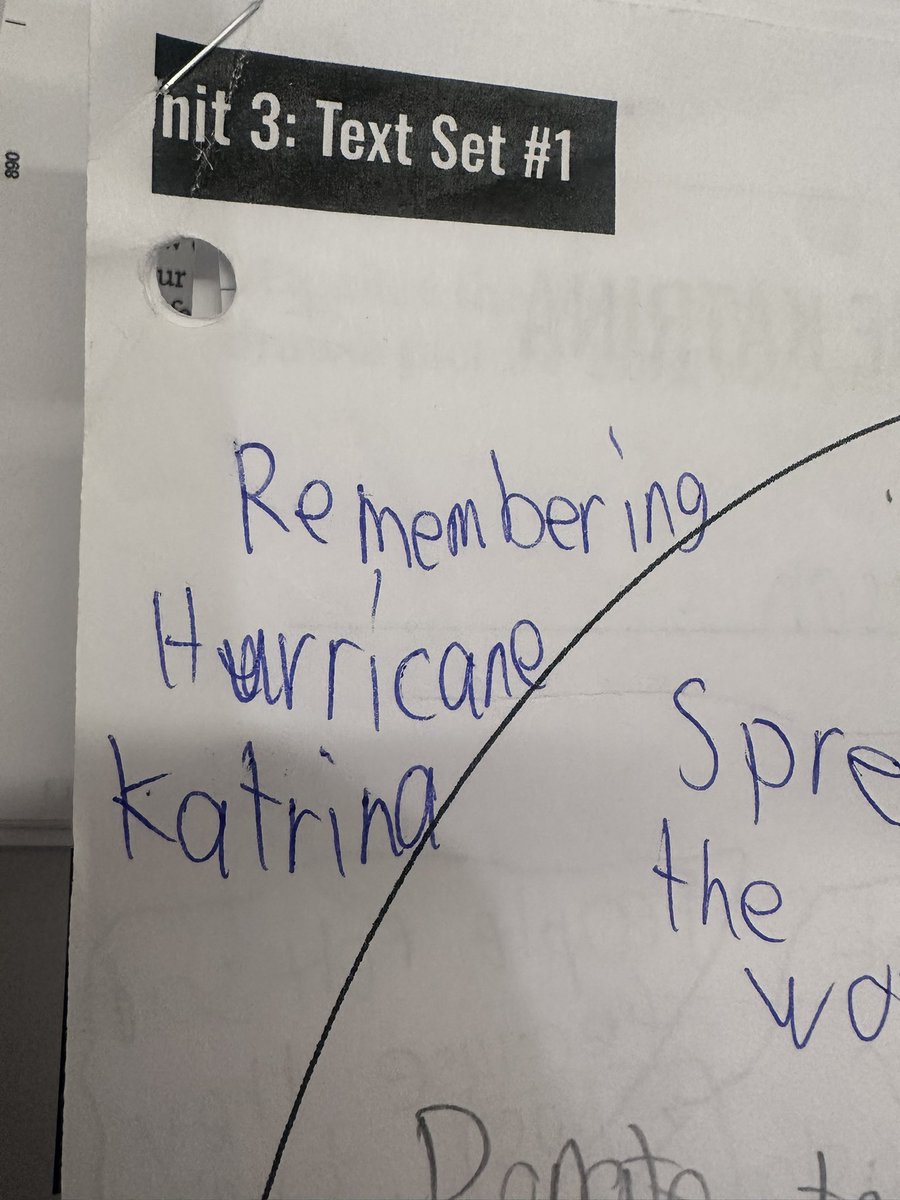 nit 3: Text Set #1
890
ur
Remembering
Hurricane
Katrina
Spre
the
wo
Donate